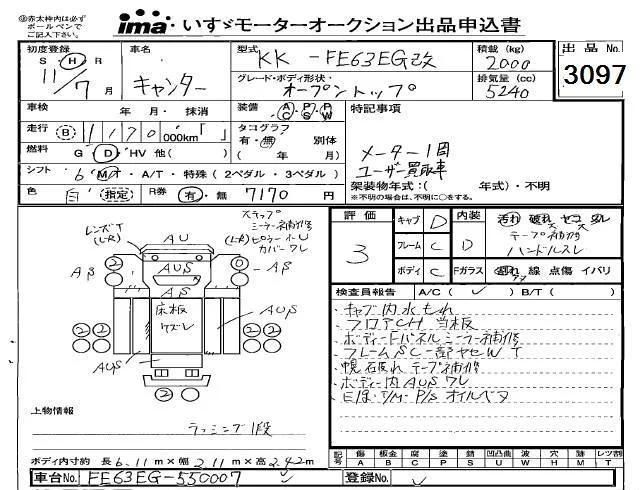 ㊟赤太枠内は必ず
ボールペンで
ご記入下さい。
ima いすゞモーターオークション出品申込書
初度登録
S・H・R
11/7月
車名
キャンター
型式
KK-FE63EG改
積載(kg)
2000
出品No.
3097
グレード・ボディ形状・
オープントップ
排気量(cc)
5240
車検
年・月・抹消
装備
A/C P/S P/W
特記事項
走行
(B) 1170 000km「 」
タコグラフ
有・無 別体
( 年/ 月)
メーター1回
ユーザー買取車
燃料
G・D・HV 他( )
シフト
6 M・A/T・特殊(2ペダル・3ペダル)
架装物年式:( 年式)・不明
※不明の場合は、不明に○をする。
色
白 指定
R券
有・無
7170円
評価
3
キャブ D
フレーム C
ボディ C
内装 D
汚れ 破れ ヤセコゲ
テープ補修
ハンドルスレ
Fガラス
線 点傷 イバリ
検査員報告
A/C( ✓ ) B/T( )
・キャブ内水もれ
・フロアCH 当板
・ボディーFパネルシーラー補修
・フレームSC一部ヤセWT
・幌破れテープ補修
・ボディー内AUSワレ
・E/g・T/M・P/Sオイルベタ
ステップ
シーラー補修
(L-R)ピラー小U
カバーワレ
レンズT
(L-R)
AU
AUS
AB
AB
AB
床板
ケズレ
AUS
AUS
AUS
上物情報
ラッシング1段
ボディ内寸約 長6.11m×幅2.11m×高2.42m
記号
傷 A
板金 B
腐 C
塗 P
錆 S
凹凸曲 U
波 W
穴 H
跡 M
レツ割 T
車台No.
FE63EG-550007
登録No.